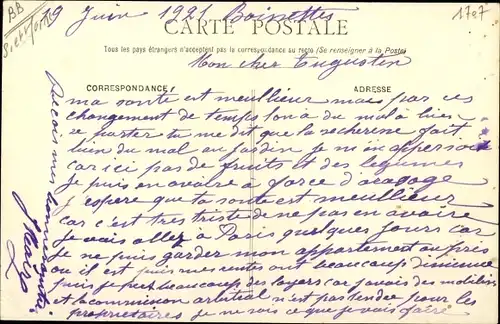 BB
S et M
1707
19 Juin 1921 Boissettes
CARTE POSTALE
Tous les pays étrangers n'acceptent pas la correspondance au recto (Se renseigner à la Poste)
Mon cher Augustin
CORRESPONDANCE
ADRESSE
ma santé est meullieur mais par ces
changement de temps lon a du mal a bien
se porter tu me dit que la secheresse fait
bien du mal au jardin je m'en appersoi
car ici pas de fruits et des legumes
je puis en avoire a force d'arosage
j'espere que ta santé est meullieur
car c'est tres triste de ne pas en avoire
je vais allez a Paris quelques jours car
je ne puis garder mon appartement au prix
ou il est puis mes rentes ont beaucoup diminué
puis je perd beaucoup des loyers car j'avais des mobilisé
et la commission arbitral n'est pas tendre pour les
proprietaires je ne sais ce que je vais faire
Recois mes